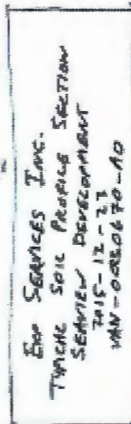 EXP SERVICES INC.
TYPICAL SOIL PROFILE SECTION
SEAVIEW DEVELOPMENT
2015-12-23
VAN-00230670-A0